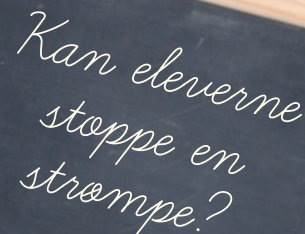 Kan eleverne
stoppe en
strømpe?